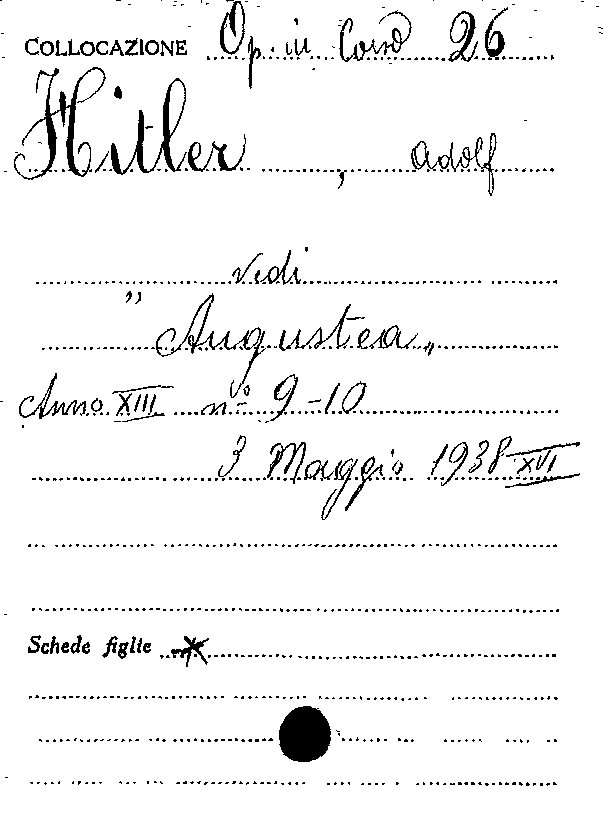 COLLOCAZIONE Op. in Corso 26
Hitler, Adolf
Vedi
"Augustea„
Anno XIII no 9-10
3 Maggio 1938 XVI
Schede figlie